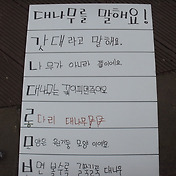 대나무를 말해요!
갓대라고 말해요.
나무가 아니라 풀이에요.
대나무는 꽃이피면죽어요
롱다리 대나무
모양은 원기둥 모양 이에요
면 볼수록 길쭉길쭉 대나무